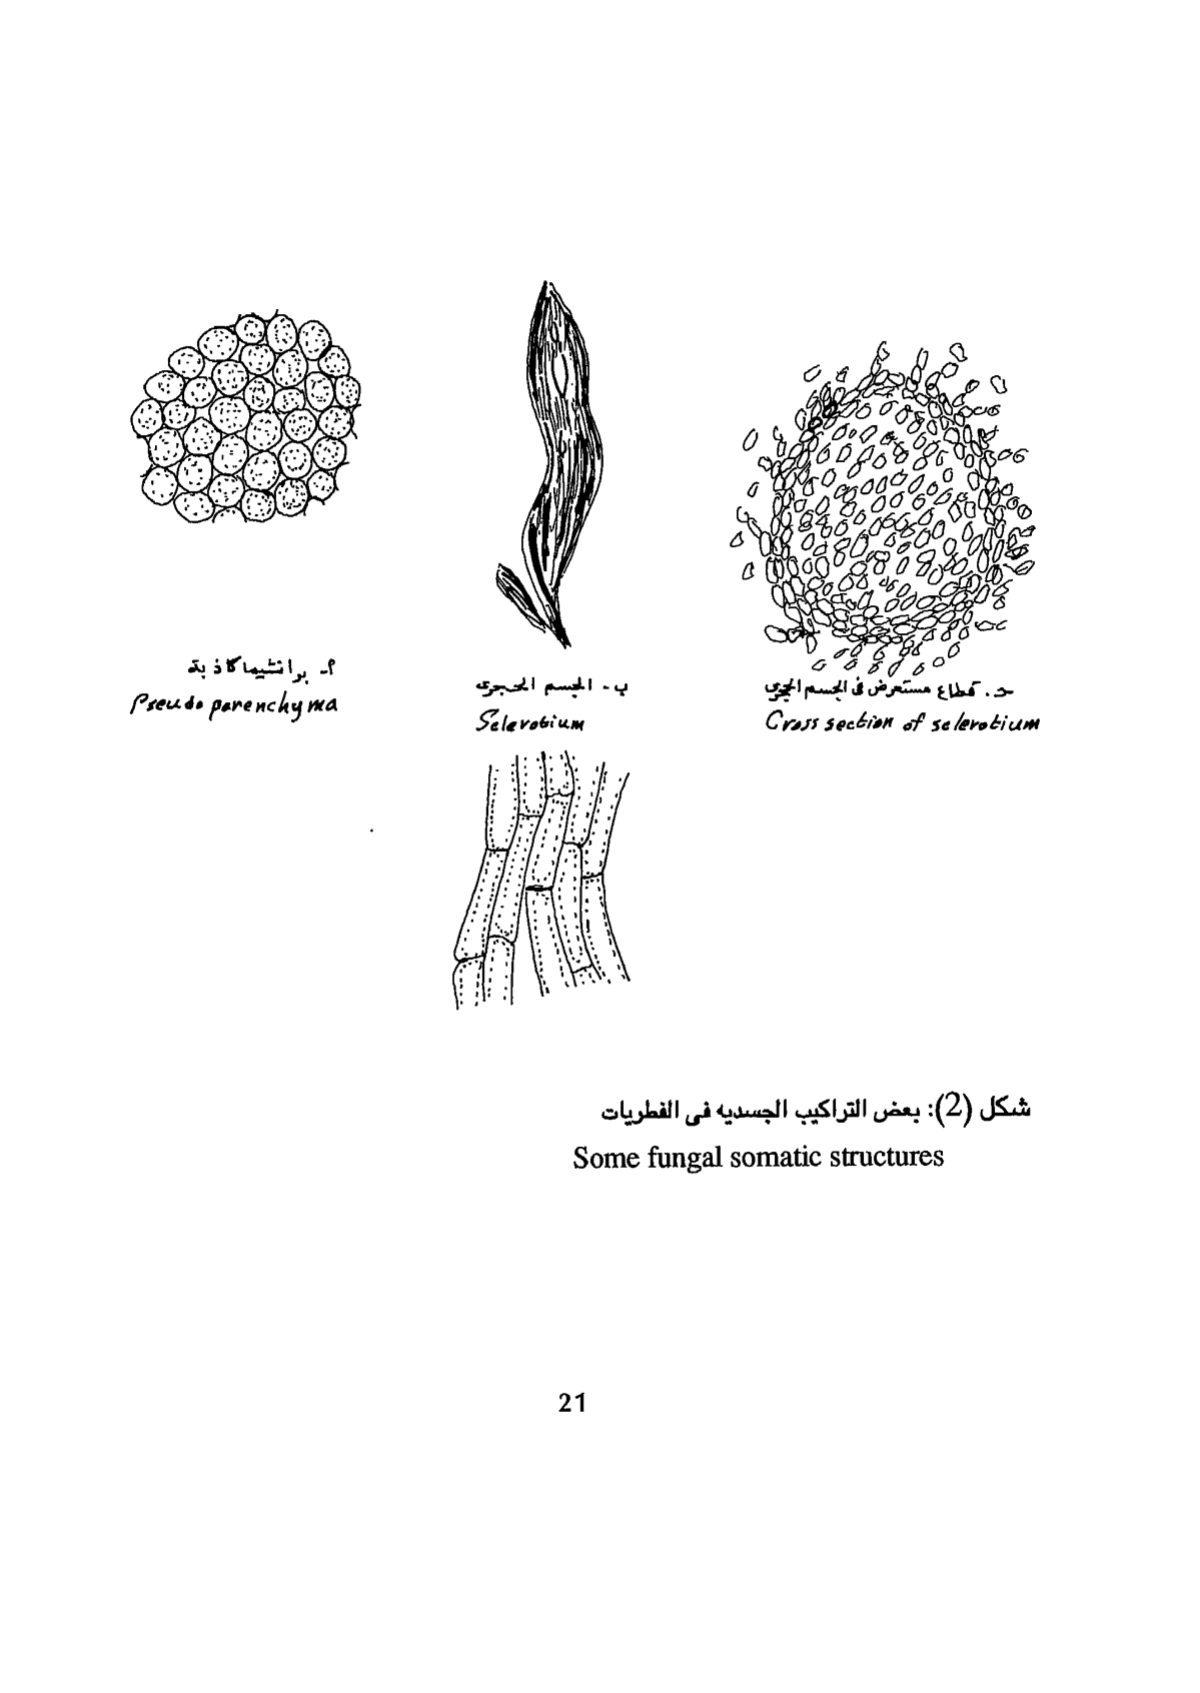 أ- برانشيما كاذبة
Pseudo parenchyma
ب - الجسم الحجرى
Sclerotium
حـ . قطاع مستعرض فى الجسم الحجرى
Cross section of sclerotium
شكل (2): بعض التراكيب الجسديه فى الفطريات
Some fungal somatic structures
21